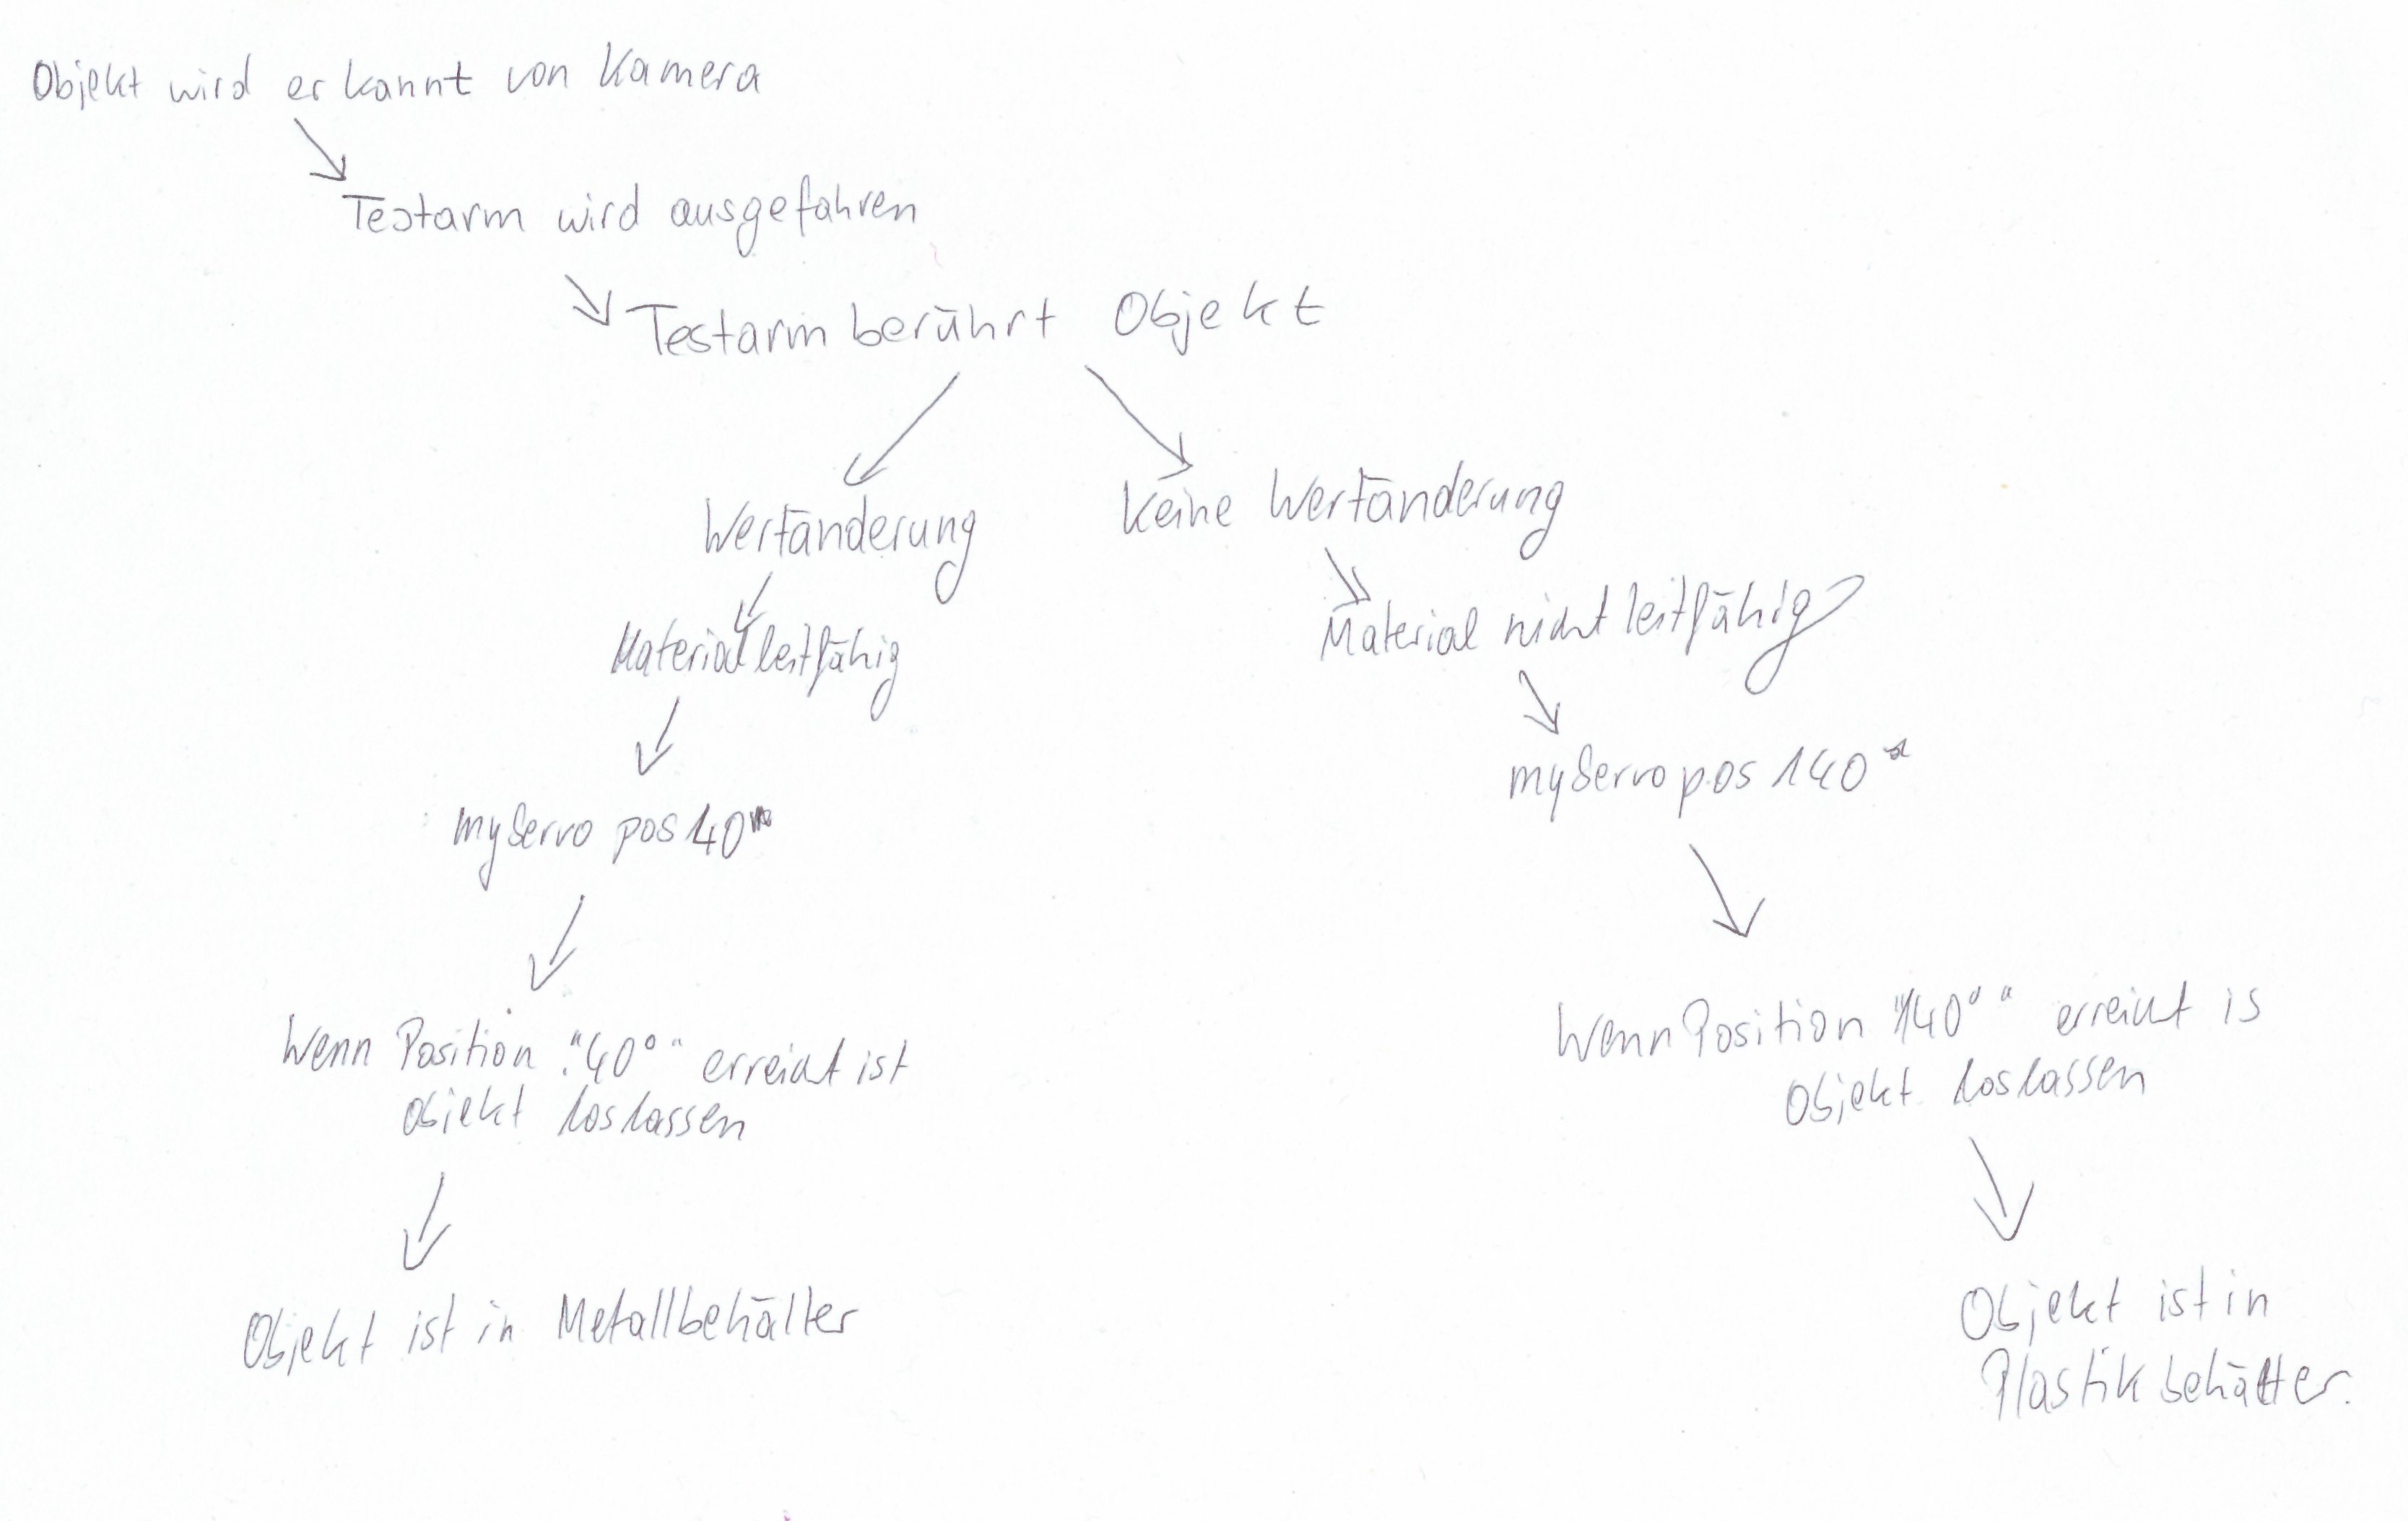 Objekt wird erkannt von Kamera
Testarm wird ausgefahren
Testarm berührt Objekt
Wertänderung
Keine Wertänderung
Material leitfähig
Material nicht leitfähig
myServo pos 40
myServo pos 140
Wenn Position "40°" erreicht ist
Objekt loslassen
Wenn Position "140°" erreicht is
Objekt loslassen
Objekt ist in Metallbehälter
Objekt ist in
Plastikbehälter.